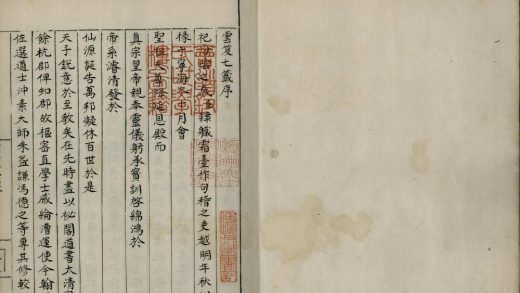 雲笈七籤序
祀汾陰之歲臣隸職霜臺作句稽之吏越明年秋
掾于寧海冬十月會
聖祖天尊降延恩殿而
真宗皇帝親奉靈儀躬承寶訓啓綿鴻於
帝系濬清發於
仙源誕告萬邦凝休百世於是
天子銳意於至教矣在先時盡以祕閣道書太清
餘杭郡俾知郡故樞密直學士戚綸漕運使今翰
佐選道士沖素大師朱益謙馮德之等專其修較